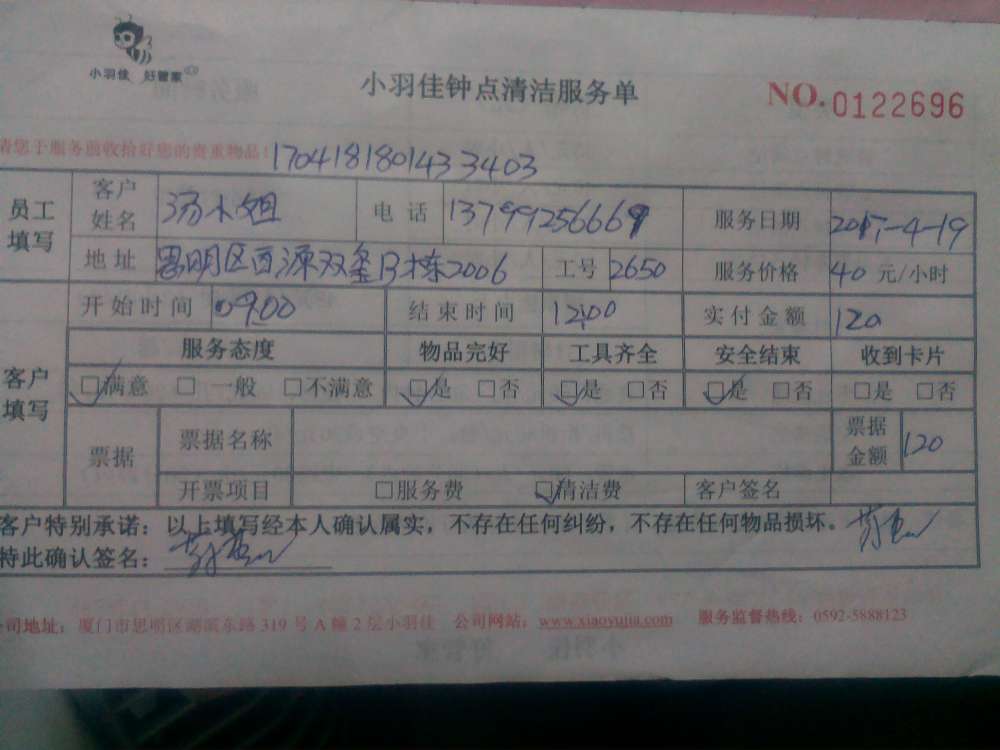 小羽佳 好管家
小羽佳钟点清洁服务单
NO. 0122696
请您于服务前收拾好您的贵重物品! 170418180143 3403
员工填写 客户姓名 汤小姐 电话 13799256669 服务日期 2017-4-19
地址 思明区西源双玺B栋2006 工号 2650 服务价格 40 元/小时
客户填写 开始时间 09:00 结束时间 12:00 实付金额 120
服务态度 物品完好 工具齐全 安全结束 收到卡片
☑满意 □一般 □不满意 ☑是 □否 ☑是 □否 ☑是 □否 □是 □否
票据 票据名称 票据金额 120
开票项目 □服务费 ☑清洁费 客户签名
客户特别承诺：以上填写经本人确认属实，不存在任何纠纷，不存在任何物品损坏。
特此确认签名：
公司地址：厦门市思明区湖滨东路 319 号 A 幢 2 层小羽佳 公司网站：www.xiaoyujia.com 服务监督热线：0592-5888123